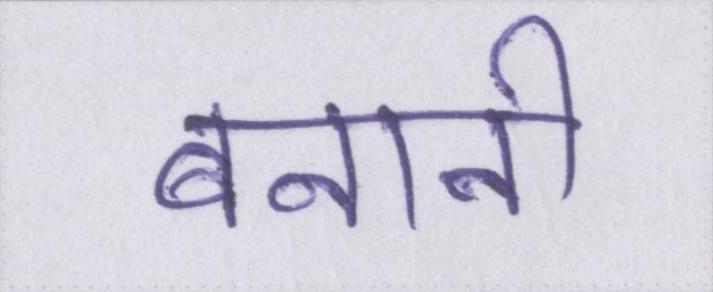 बनानी